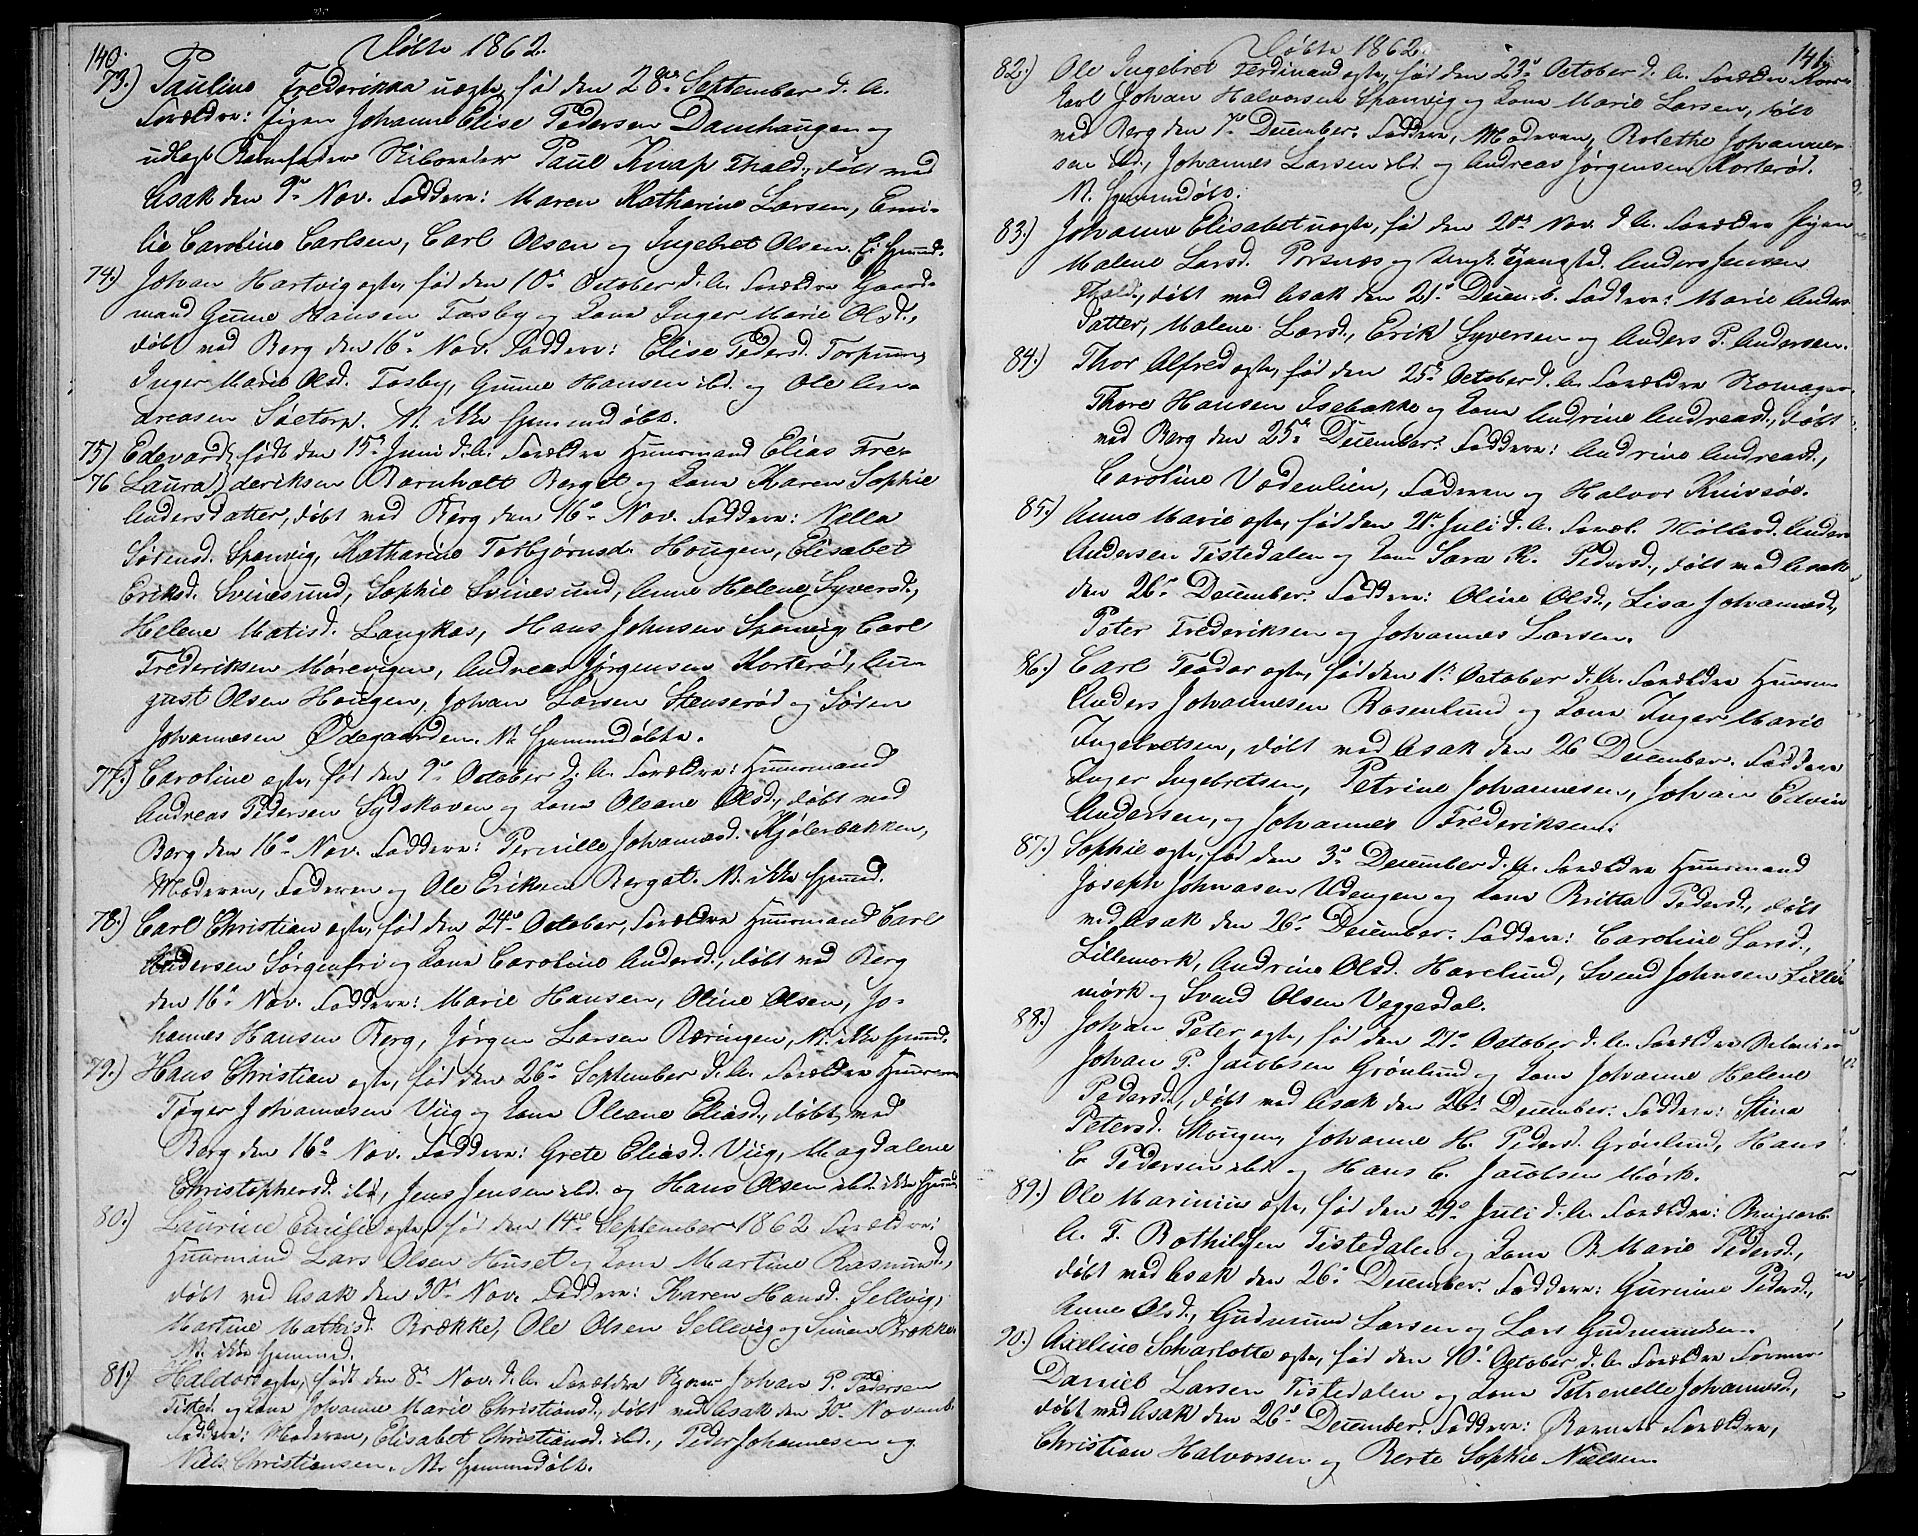 140.
Døbte 1862.
73.) Pauline Frederikke uægte, fød den 28de September d. A.
Forældre: Pigen Johanne Elise Pedersen Damhaugen og
udlagt Barnefader Paul Knap Thald., døbt ved
Asak den 9de Nov. Faddere: Maren Katharine Larsen, Emi-
lie Caroline Carlsen, Carl Olsen og Ingebret Olsen. Ei hjemmd.
74.) Johan Hartvig ægte, fød den 10de October d. A. Forældre Gaard-
mand Gunne Hansen Tosby og Kone Inger Marie Olsd.,
døbt ved Berg den 16de Nov. Faddere: Elise Pedersd. Torpum,
Inger Marie Olsd. Tosby, Gunne Hansen ibd. og Ole An-
dreasen Sætorp. N. ikke hjemmedøbt.
75) Edevard, født den 15de Juni d. A. Forældre Huusmand Elias Fre-
76 Laura) deriksen Barnholt Berget og Kone Karen Sophie
Andersdatter, døbt ved Berg den 16de Nov. Faddere: Nella
Sørensd. Sponvig, Katharine Torbjørnsd. Hougen, Elisabet
Eriksd. Svinesund, Sophie Svinesund, Anne Helene Syversd.,
Helene Matisd. Langkas, Hans Johnsen Sponvig, Carl
Frederiksen Mørevigen, Andreas Jørgensen Korterød, Au-
gust Olsen Hougen, Johan Larsen Stenserød og Søren
Johannesen Ødegaarden. N. hjemmedøbte.
77.) Caroline ægte, fød den 9de October d. A. Forældre: Huusmand
Andreas Pedersen Sydskoven og Kone Oleane Olsd., døbt ved
Berg den 16de Nov. Faddere: Pernille Johannesd. Kjølerbakken,
Moderen, Faderen og Ole Eriksen Berget. N. ikke hjemmd.
78.) Carl Christian ægte, fød den 24de October, Forældre Huusmand Carl
Andersen Sørgenfri og Kone Caroline Andersd., døbt ved Berg
den 16de Nov. Faddere: Marie Hansen, Oline Olsen, Jo-
hannes Hansen Berg, Jørgen Larsen Ræringen, N. ikke hjemmd.
79.) Hans Christian ægte, fød den 26de September d. A. Forældre Huusm.
Tøger Johannesen Viig og Kone Oleane Eliasd., døbt ved
Berg den 16de Nov. Faddere: Grete Eliasd. Viig, Magdalene
Christophersd. ibd., Jens Jensen ibd. og Hans Olsen ibd. ikke hjemmd.
80.) Laurine Emilie ægte, fød den 14de September 1862 Forældre:
Huusmand Lars Olsen Huset og Kone Martine Rasmusd.,
døbt ved Asak den 30de Nov. Faddere: Karen Hansd. Sellvig,
Martine Mathisd. Brække, Ole Olsen Sellevig og Simen Brække
N. ikke hjemmd.
81.) Haldor ægte, født den 8de Nov. d. A. Forældre Johan P. Pedersen
Tisted. og Kone Johanne Marie Christiansd., døbt ved Asak den 30de Novemb.
Faddere: Moderen, Elisabet Christiansd. ibd., Peder Johannesen og
Niels Christiansen. N. hjemmedøbt.
Døbte 1862.
141.
82.) Ole Ingebret Ferdinand ægte, fød den 23de October d. A. Forældre
Carl Johan Halvorsen Sponvig og Kone Marie Larsen, døbt
ved Berg den 7de December. Faddere, Moderen, Bolethe Johanne-
sen ibd., Johannes Larsen ibd. og Andreas Jørgensen Korterød.
N. hjemmedøbt.
83.) Johanne Elisabet uægte, fød den 20de Nov. d. A. Forældre Pigen
Malene Larsd. Porsnæs og Anders Jensen
Thald., døbt ved Asak den 21de Decemb. Faddere: Marie Anders-
datter, Malene Larsd., Erik Syversen og Anders P. Andersen.
84.) Thor Alfred ægte, fød den 25de October d. A. Forældre
Thore Hansen Isebakke og Kone Andrine Andreasd., døbt
ved Berg den 25de December. Faddere: Andrine Andreasd.,
Caroline Vødenlien, Faderen og Halvor Knivsøe.
85.) Anne Marie ægte, fød den 21de Juli d. A. Foræl. Møllerd. Anders
Andersen Tistedalen og Kone Sara K. Pedersd., døbt ved Asak
den 26de December. Faddere: Oline Olsd., Lisa Johannesd.,
Peter Frederiksen og Johannes Larsen.
86.) Carl Teodor ægte, fød den 1ste October d. A. Forældre Huusm.
Anders Johannesen Rosenlund og Kone Inger Marie
Ingebretsen, døbt ved Asak den 26 December. Faddere
Inger Ingebretsen, Petrine Johannesen, Johan Edvin
Andersen, og Johannes Frederiksen.
87.) Sophie ægte, fød den 3de December d. A. Forældre Huusmand
Joseph Johnasen Udengen og Kone Britta Pedersd., døbt
ved Asak den 26de December. Faddere: Caroline Larsd.,
Lillemørk, Andrine Olsd. Harelund, Svend Johnsen Lille-
mørk og Svend Olsen Veggesdal.
88.) Johan Peter ægte, fød den 21de October d. A. Forældre
Johan P. Jacobsen Grønlund og Kone Johanne Helene
Pedersd., døbt ved Asak den 26de December. Faddere: Stina
Petersd. Skougen, Johanne H. Pedersd. Grønlund, Hans
C. Pedersen ibd. og Hans C. Jacobsen Mørk.
89.) Ole Marinius ægte, fød den 29de Juli d. A. Forældre: Brugsarb.
A. F. Bothilsen Tistedalen og Kone B. Marie Pedersd.,
døbt ved Asak den 26de December. Faddere: Gurnine Pedersd.,
Anne Olsd., Gudmund Larsen og Lars Gudmundsen.
90.) Axeline Scharlotte ægte, fød den 10de October d. A. Forældre Former
Daniel Larsen Tistedalen og Kone Petronelle Johannesd.,
døbt ved Asak den 26de December. Faddere: Barnets Forældre,
Christian Halvorsen og Berte Sophie Nielsen.